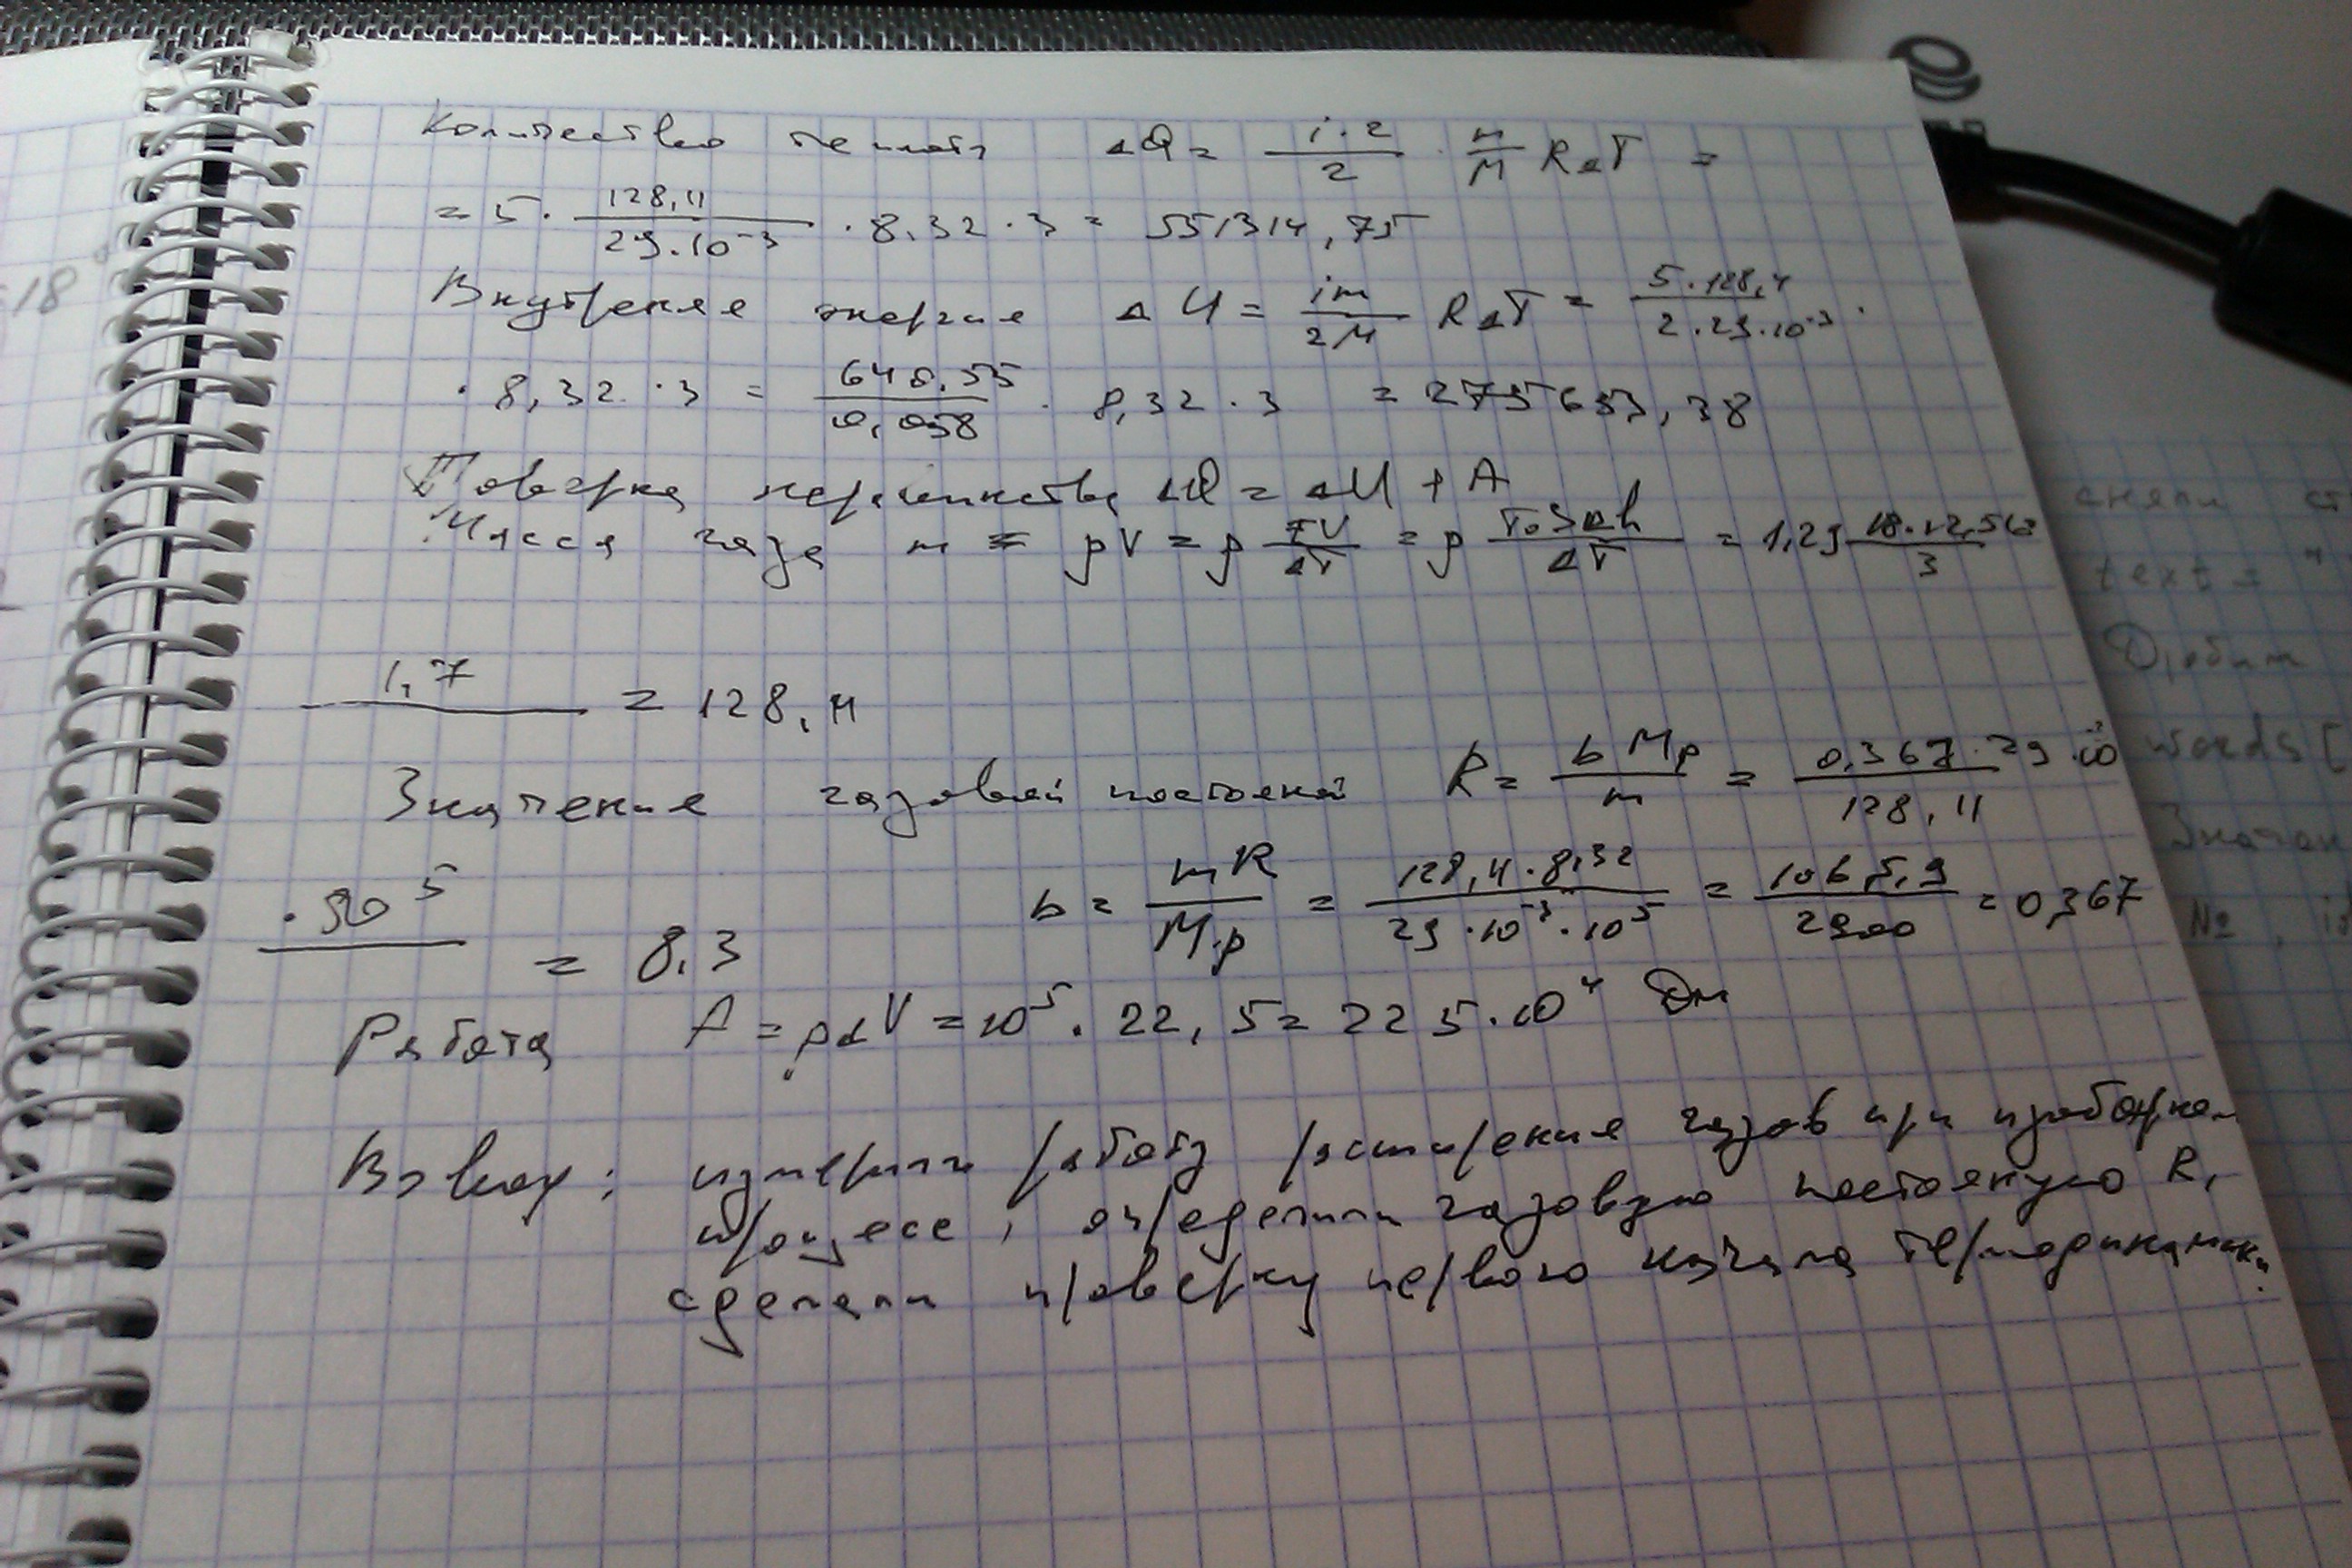 Количество теплоты ΔQ = i·2/2 · m/M RΔT =
= 5 · 128,11/29·10⁻³ · 8,32 · 3 = 551314,75
Внутреняя энергия ΔU = im/2M RΔT = 5·128,4/2·29·10⁻³ ·
· 8,32 · 3 = 640,55/0,058 · 8,32 · 3 = 275653,38
ΔQ = ΔU + A
Масса газа m = ρV = ρ TV/ΔT = ρ T₀SΔh/ΔT = 1,29 18·12,56·
1,7 = 128,11
3
Значение газовой постояной R = bMp/m = 0,367·29·10⁻³/128,11
·10⁵ = 8,3
b = mR/M·p = 128,4·8,32/29·10⁻³·10⁵ = 1065,9/2900 = 0,367
Работа A = pΔV = 10⁵ · 22,5 = 225·10⁴ Дж
Вывод: измерили работу расширения газов при изобарном
процесе, определили газовую постояную R,
сделали проверку первого начала термодинамики.
18°
text = "
words [
№, is